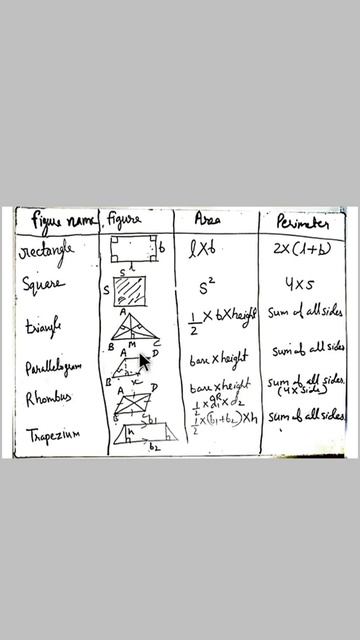 figure name figure Area Perimeter
rectangle b l l×b 2×(l+b)
Square S S S² 4×S
triangle A B M C 1/2×b×height sum of all sides
Parallelogram A D B h base×height sum of all sides
Rhombus A D B C base×height OR 1/2×d1×d2 sum of all sides (4×side)
Trapezium b1 h b2 1/2×(b1+b2)×h sum of all sides